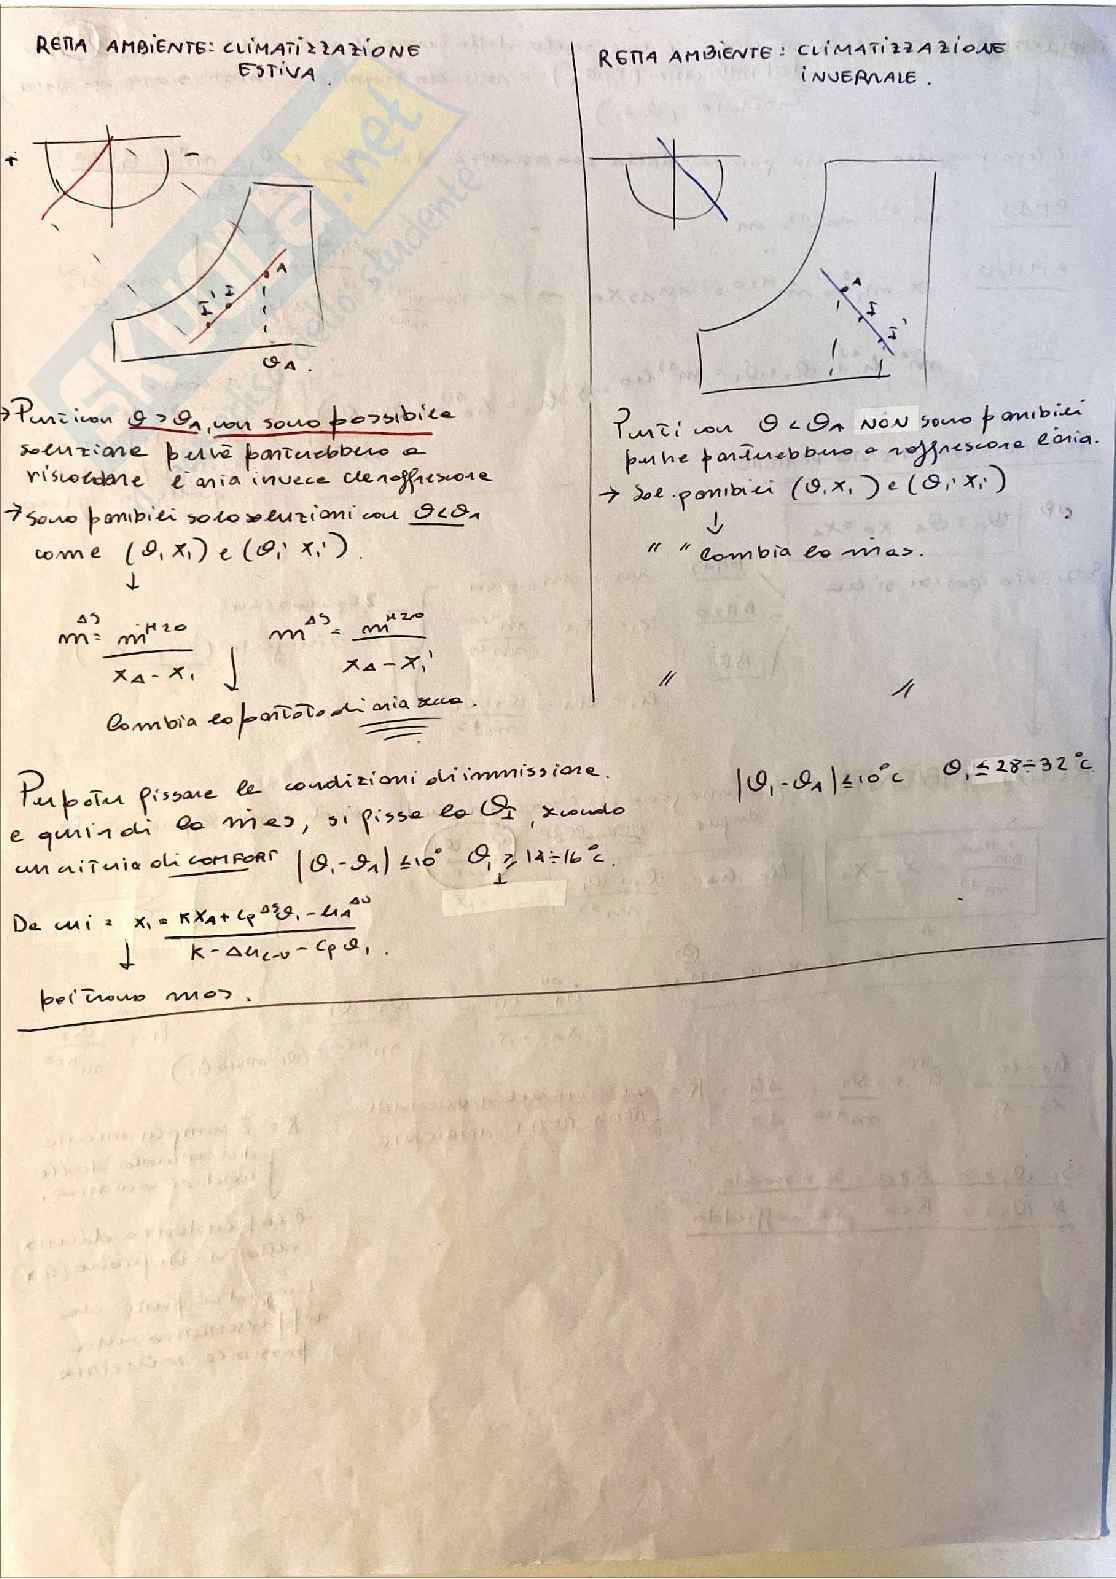 RETTA AMBIENTE: CLIMATIZZAZIONE
ESTIVA.
+ -
A
I
I'
ϑA.
→ Punti con ϑ > ϑA, non sono possibile
soluzione perché porterebbero a
riscaldare l'aria invece che raffrescare
→ Sono possibili solo soluzioni con ϑ<ϑA
come (ϑ, X₁) e (ϑ₁' X₁').
↓
ṁ^AS = ṁ^H2O / XA - X₁
ṁ^AS = ṁ^H2O / XA - X₁'
↓
Cambia la portata di aria secca.
RETTA AMBIENTE: CLIMATIZZAZIONE
INVERNALE.
A
I
I'
Punti con ϑ < ϑA NON sono possibili
perché porterebbero a raffrescare l'aria.
→ Sol. possibili (ϑ, X₁) e (ϑ₁' X₁')
↓
" " Cambia la mas.
" "
Per poter fissare le condizioni di immissione.
e quindi la mas, si fissa la ϑI, secondo
un criterio di COMFORT |ϑ₁-ϑA| ≤ 10° ϑ₁ ≥ 14÷16°C.
↓
|ϑ₁-ϑA| ≤ 10°C ϑ₁ ≤ 28÷32°C
Da cui: X₁ = KXA + Cp^AS ϑ₁ - hA^AU / K - Δhc-v - Cpϑ₁.
↓
poi trovo mas.